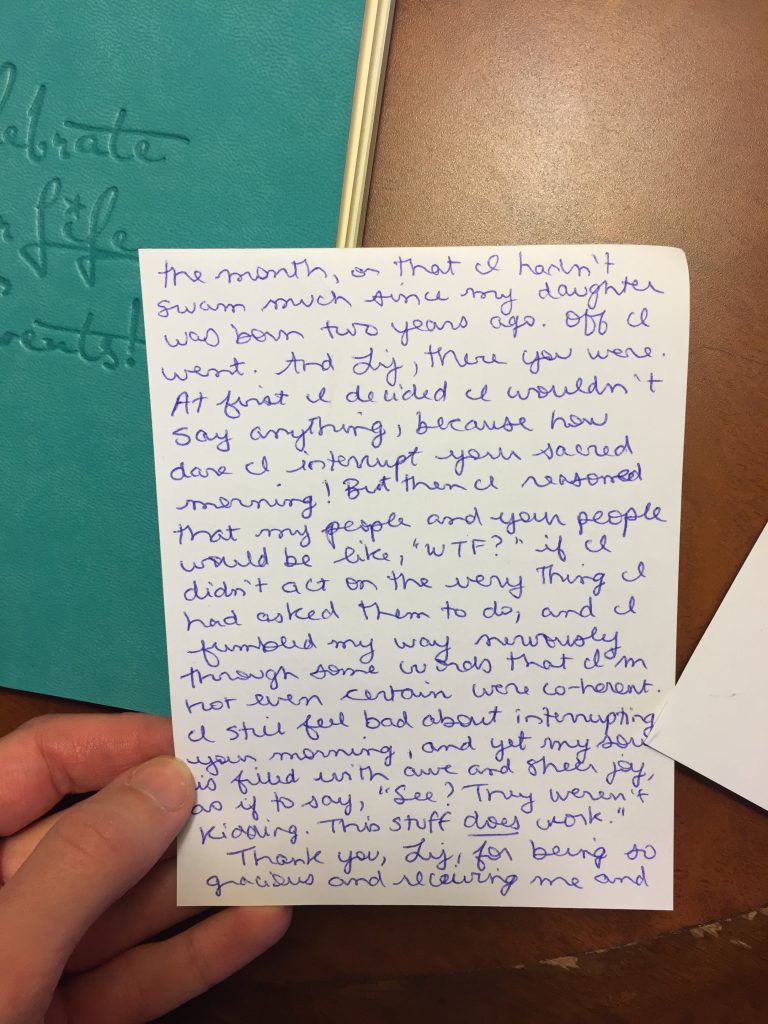 ebrate
Life
ents!
the month, or that I hadn't
swam much since my daughter
was born two years ago. Off I
went. And Liz, there you were.
At first I decided I wouldn't
say anything, because how
dare I interrupt your sacred
morning! But then I reasoned
that my people and your people
would be like, "WTF?" if I
didn't act on the very thing I
had asked them to do, and I
fumbled my way nervously
through some words that I'm
not even certain were co-herent.
I still feel bad about interrupting
your morning, and yet my soul
is filled with awe and sheer joy,
as if to say, "See? They weren't
kidding. This stuff does work."
Thank you, Liz, for being so
gracious and receiving me and